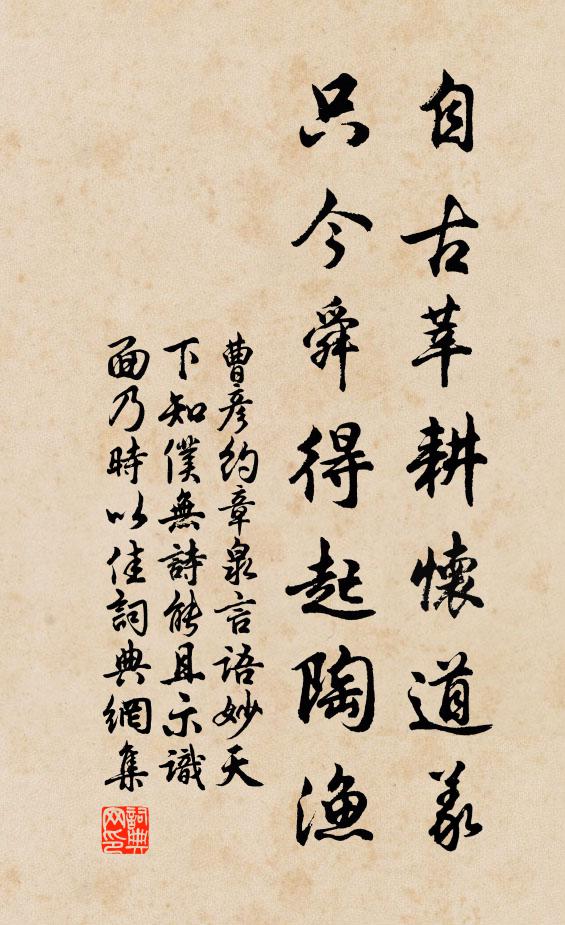 自古莘耕懷道義
只今舜得起陶漁
曹彥約章泉言語妙天
下知僕無詩能且示識
面乃時以佳詞典網集
詞典網印